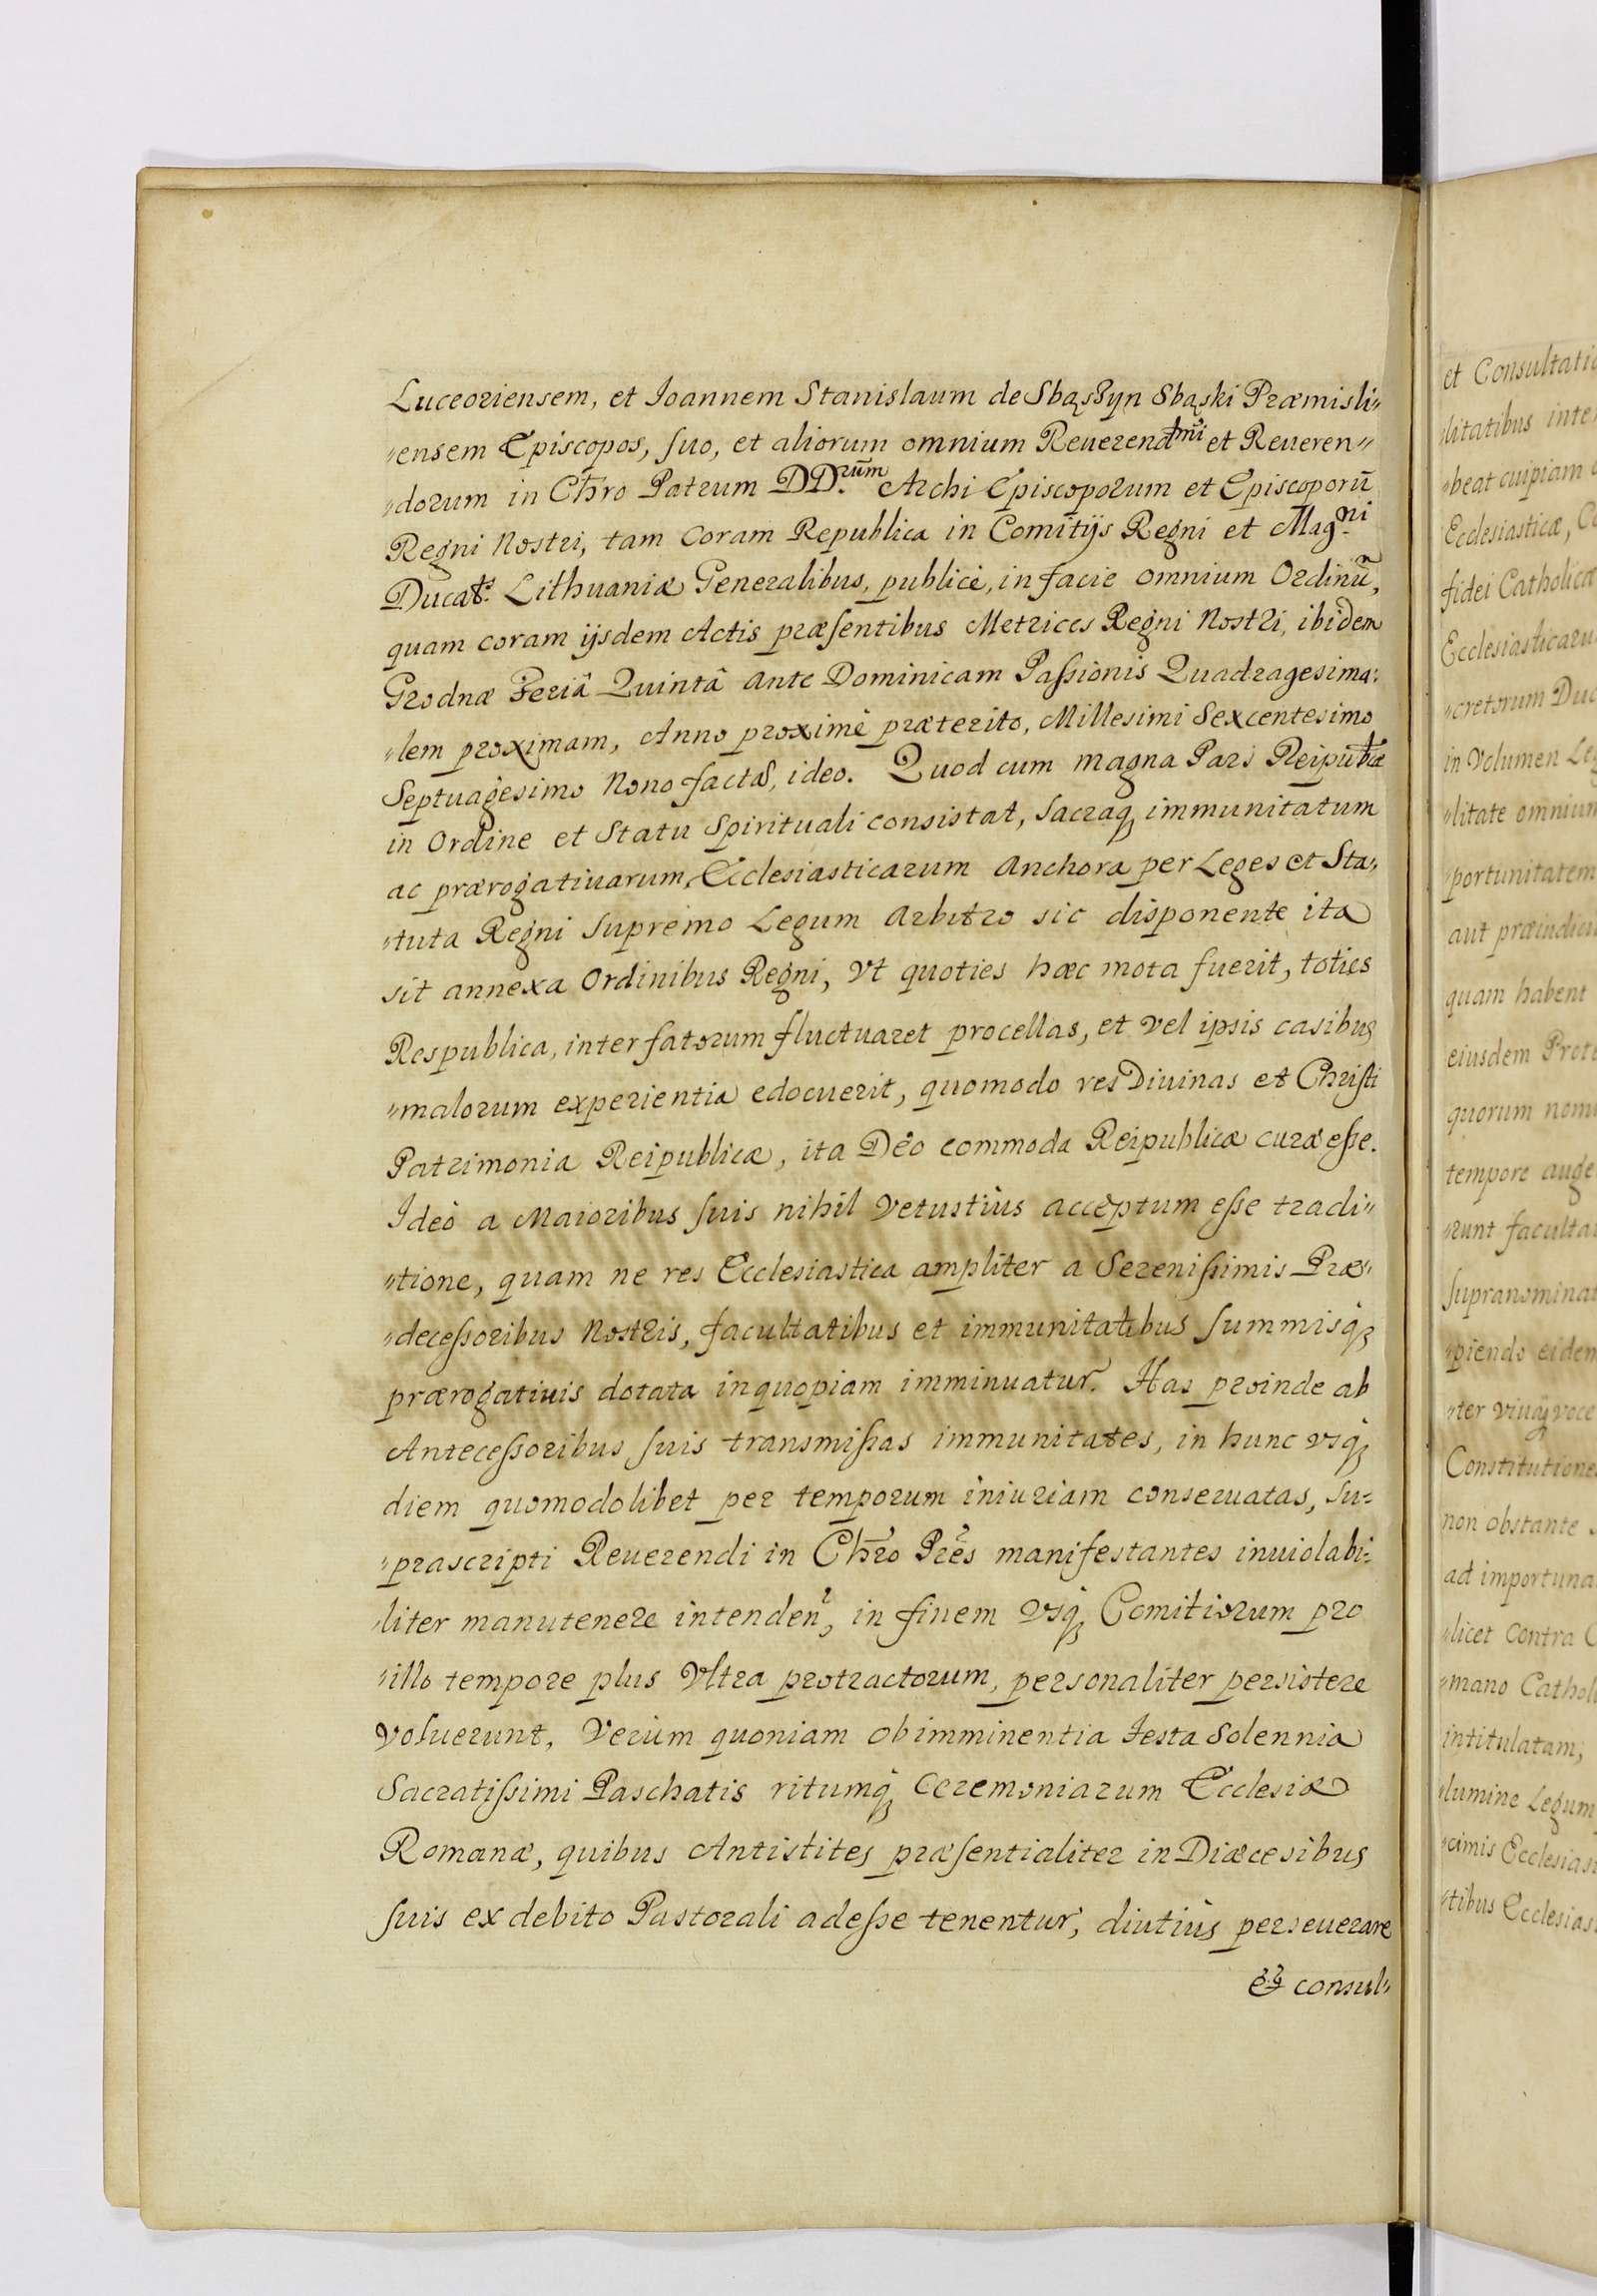 Luceoriensem, et Joannem Stanislaum de Sbąszyn Sbąski Præmisli„
„ensem Episcopos, suo, et aliorum omnium Reuerendmi et Reueren„
„dorum in Chro Patrum DD.rum Archi Episcoporum et Episcoporũ
Regni Nostri, tam coram Republica in Comitijs Regni et Mag.ni
Ducats. Lithuaniæ Generalibus, publicè, in facie omnium Ordinũ,
quam coram ijsdem Actis præsentibus Metrices Regni Nostri, ibidem
Grodnæ Feriâ Quintâ ante Dominicam Passionis Quadragesima:
„lem proximam, Anno proximè præterito, Millesimi Sexcentesimo
Septuagesimo Nono facta, ideo. Quod cum magna Pars Reipubcæ
in Ordine et Statu Spirituali consistat, sacraq; immunitatum
ac prærogatiuarum, Ecclesiasticarum Anchora per Leges et Sta„
„tuta Regni supremo Legum Arbitro sic disponente ita
sit annexa Ordinibus Regni, vt quoties hæc mota fuerit, toties
Respublica, inter fatorum fluctuaret procellas, et vel ipsis casibus
„malorum experientia edocuerit, quomodo res Diuinas et Christi
Patrimonia Reipublicæ, ita Deo commoda Reipublicæ curæ esse.
Ideò a Maioribus suis nihil vetustiùs acceptum esse tradi„
„tione, quam ne res Ecclesiastica ampliter a Serenissimis Præ„
„decessoribus Nostris, facultatibus et immunitatibus summisq;
prærogatiuis dotata in quopiam imminuatur. Has proinde ab
Antecessoribus suis transmissas immunitates, in hunc vsq;
diem quomodolibet per temporum iniuriam conseruatas, su„
„prascripti Reuerendi in Chro Pres manifestantes inuiolabi:
„liter manutenere intenden, in finem vsq; Comitiorum pro
„illo tempore plus vltra protractorum, personaliter persistere
voluerunt, Verùm quoniam ob imminentia Festa Solennia
Sacratissimi Paschatis ritumq; Ceremoniarum Ecclesiæ
Romanæ, quibus Antistites præsentialiter in Diæcesibus
suis ex debito Pastorali adesse tenentur, diutiùs perseuerare
& consul„
et Consultatio
„litatibus inter
„beat cuipiam
Ecclesiasticæ,
fidei Catholicæ
Ecclesiasticaru
„cretorum Duc
in Volumen Leg
„litate omnium
„portunitatem
aut præiudici
quam habent
eiusdem Prote
quorum nomi
tempore auge
„runt facultat
supranominat
„piendo eidem
„ter viuaq; voce
Constitutiones
non obstante
ad importuna
„licet contra
„mano Catholi
intitulatam,
„lumine Legum
„cimis Ecclesias
„tibus Ecclesias